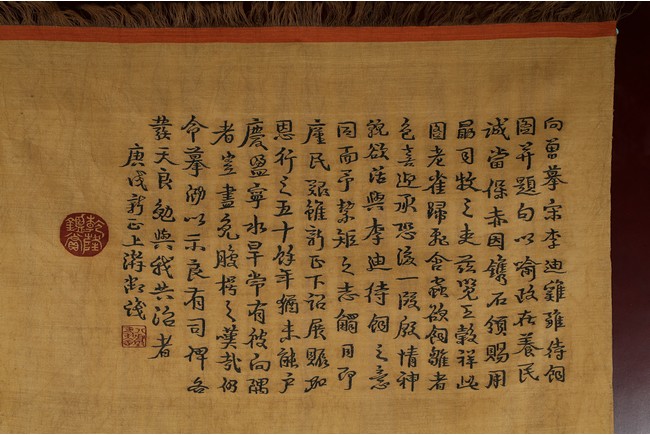 向曾摹宋李迪雞雛待飼
圖并題句以喻政在養民
誠當保赤因鐫石頒賜用
勗司牧之吏茲覽王穀祥此
圖老雀歸飛含蟲欲飼雛者
色喜迎承恐後一段殷情神
貌欲活與李迪待飼之意
同而予絜矩之志觸目即
廑民艱雖新正下詔展賑加
恩行之五十餘年猶未能戶
慶盈寧水旱常有彼向隅
者豈盡免腹枵之嘆哉仍
令摹泐以示良有司俾各
發天良勉與我共治者
庚戌新正上澣御識
乾隆鑑賞